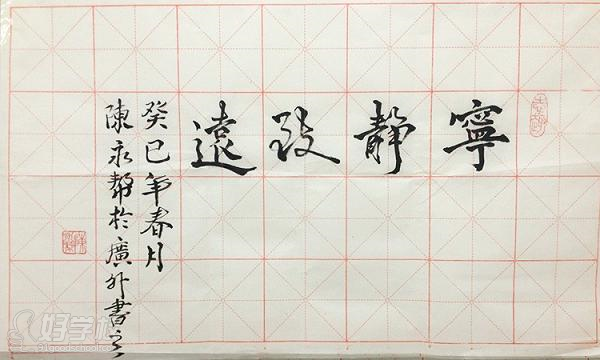 寧靜致遠
癸巳年春月
陳永幫於廣外書之
好学校